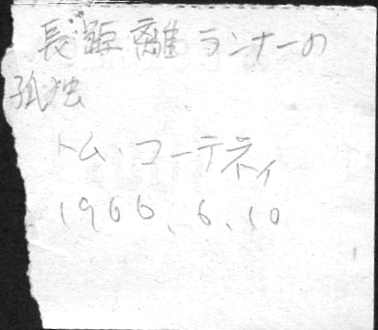 長距離ランナーの
孤独
トム・コーテネィ
1966.6.10